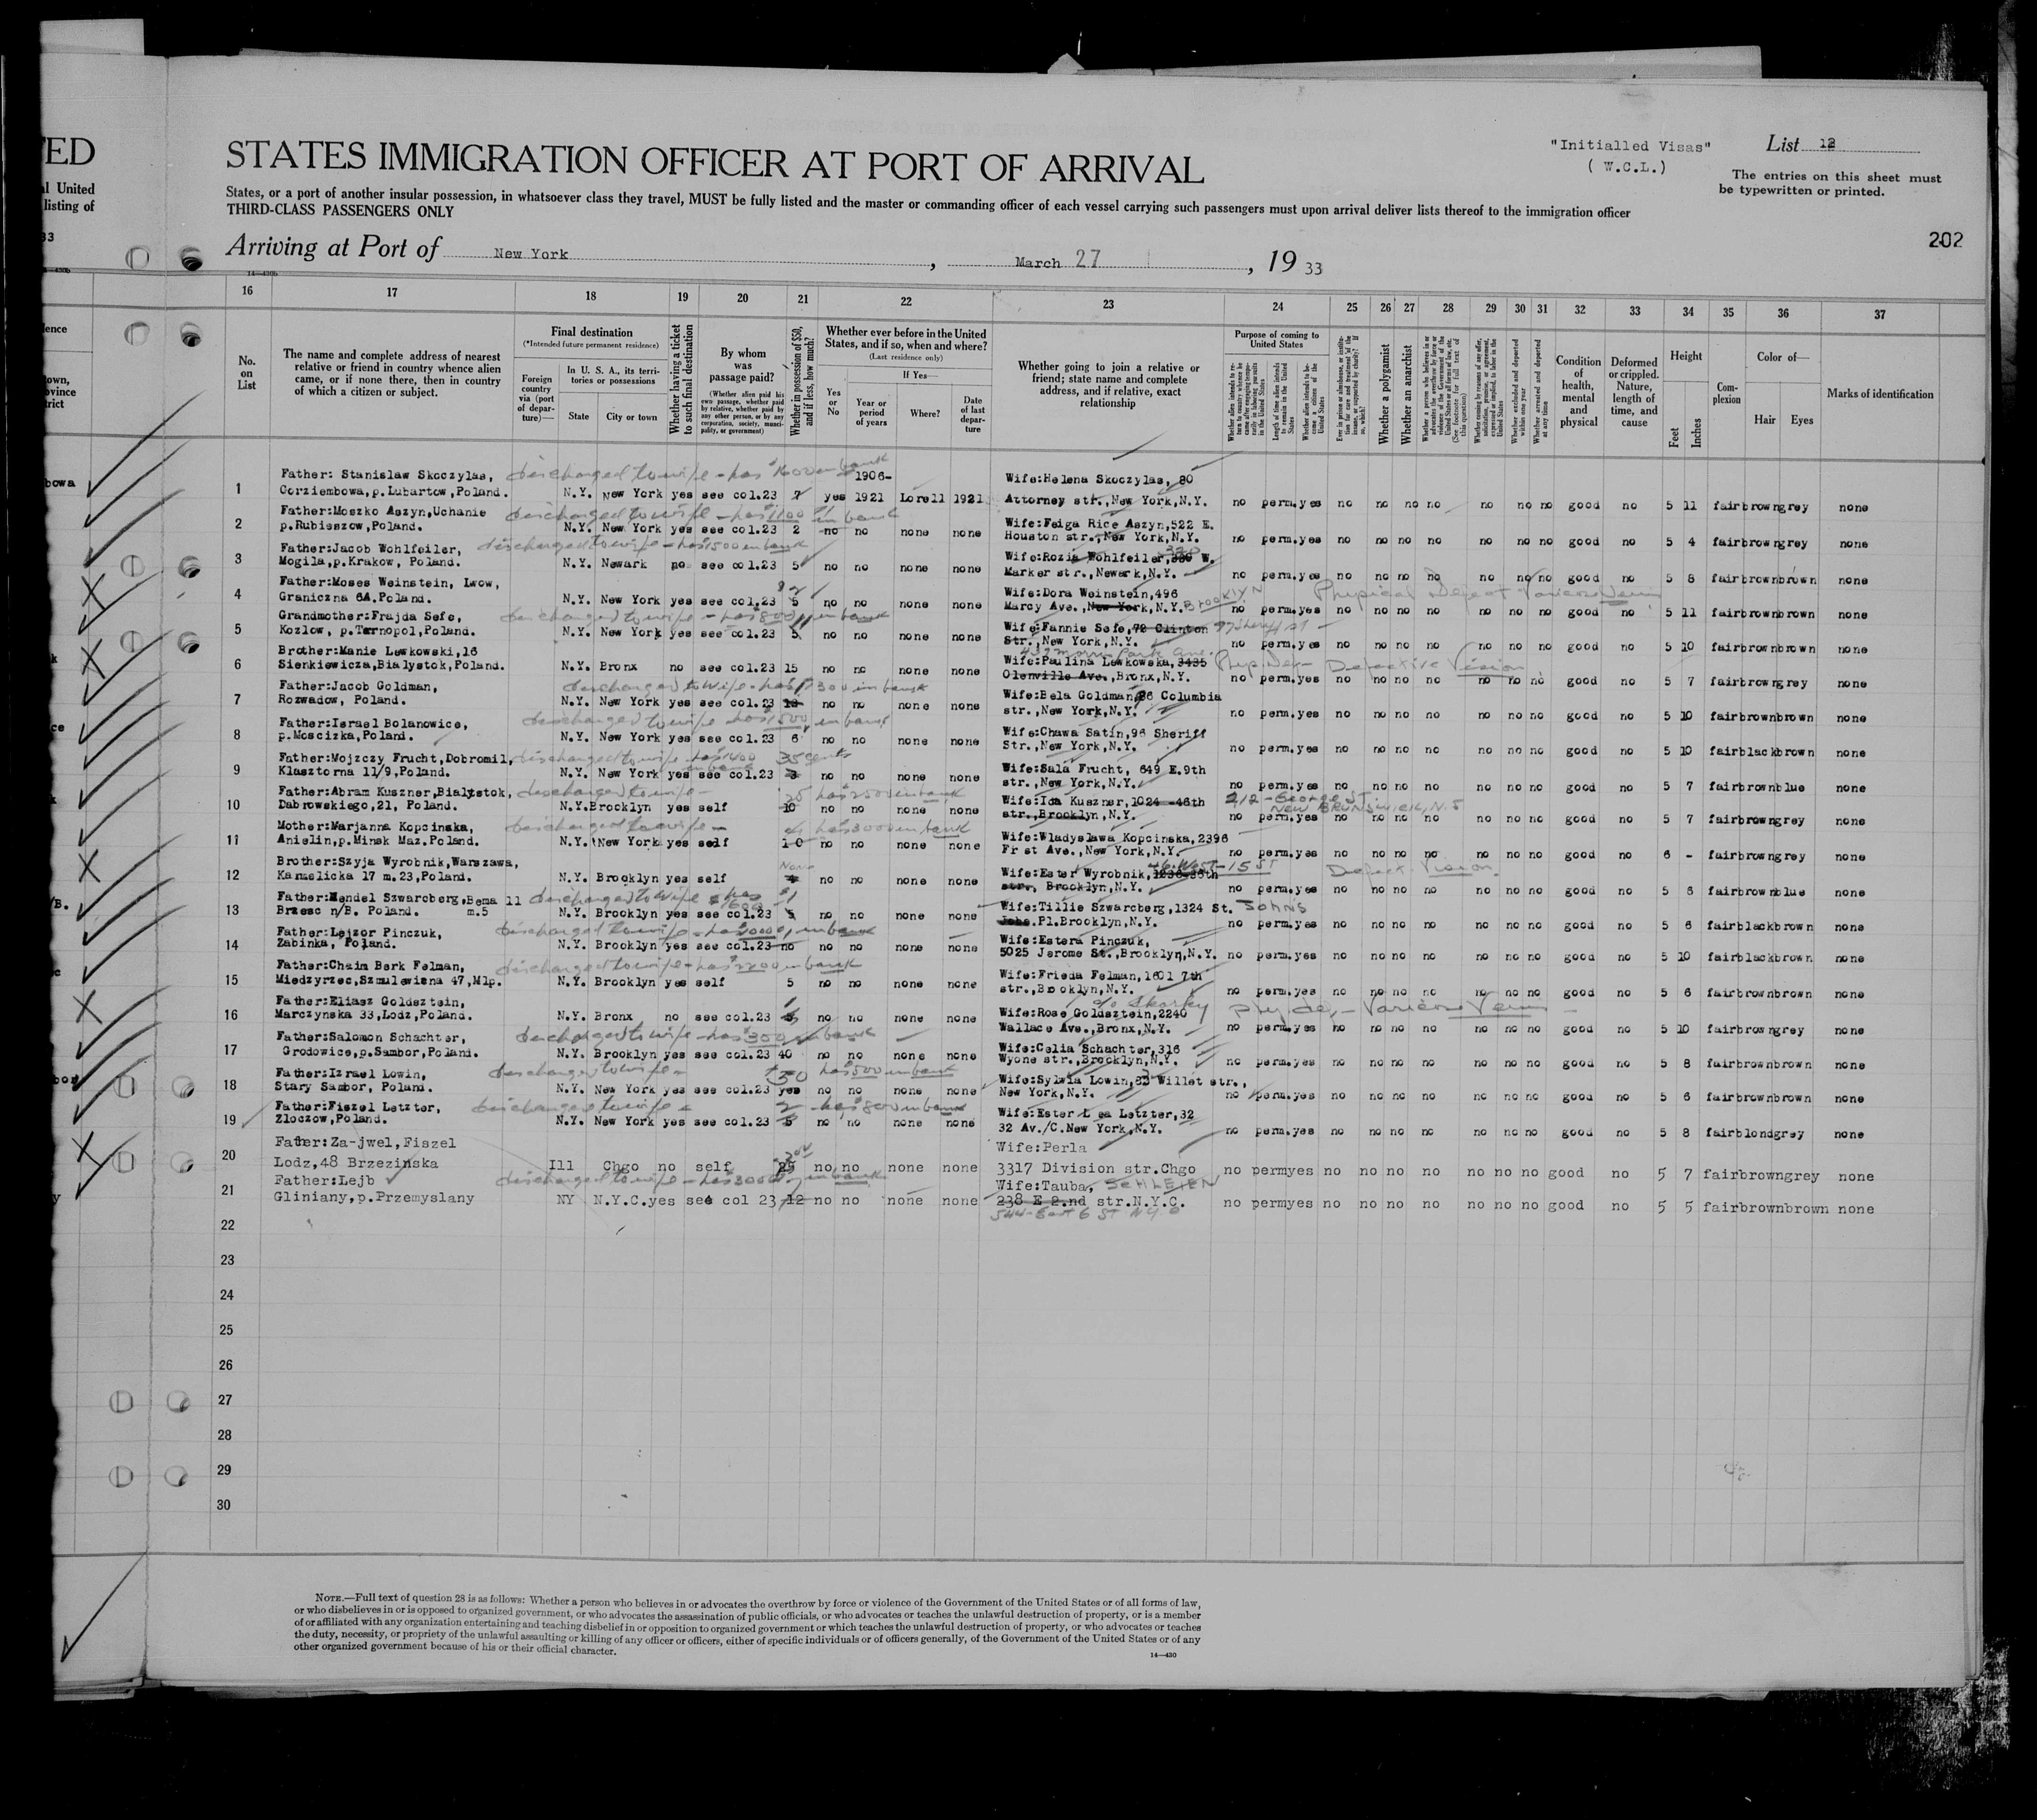 ED
STATES IMMIGRATION OFFICER AT PORT OF ARRIVAL
"Initialled Visas"
( W.C.L.)
List 12
The entries on this sheet must
be typewritten or printed.
l United
listing of
States, or a port of another insular possession, in whatsoever class they travel, MUST be fully listed and the master or commanding officer of each vessel carrying such passengers must upon arrival deliver lists thereof to the immigration officer
THIRD-CLASS PASSENGERS ONLY
33
202
Arriving at Port of New York, March 27, 19 33
16 17 18 19 20 21 22 23 24 25 26 27 28 29 30 31 32 33 34 35 36 37
No. on List
The name and complete address of nearest relative or friend in country whence alien came, or if none there, then in country of which a citizen or subject.
Final destination
(*Intended future permanent residence)
Foreign country via (port of departure)—
In U. S. A., its territories or possessions
State City or town
Whether having a ticket to such final destination
By whom was passage paid?
(Whether alien paid his own passage, whether paid by relative, whether paid by any other person, or by any corporation, society, municipality, or government)
Whether in possession of $50, and if less, how much?
Whether ever before in the United States, and if so, when and where?
(Last residence only)
Yes or No
If Yes—
Year or period of years
Where?
Date of last departure
Whether going to join a relative or friend; state name and complete address, and if relative, exact relationship
Purpose of coming to United States
Length of time alien intends to remain in the United States
Whether alien intends to become a citizen of the United States
Whether a polygamist
Whether an anarchist
Whether excluded and deported within one year
Whether arrested and deported at any time
Condition of health, mental and physical
Deformed or crippled. Nature, length of time, and cause
Height
Feet Inches
Complexion
Color of—
Hair Eyes
Marks of identification
1 Father: Stanislaw Skoczylas, discharged to wife - has $1600 in bank 1906- Wife:Helena Skoczylas, 80
Corziembowa,p.Lubartow,Poland. N.Y. New York yes see col.23 7 yes 1921 Lorell 1921 Attorney str.,New York,N.Y. no perm.yes no no no no no no no good no 5 11 fair brown grey none
2 Father:Moszko Aszyn,Uchanie discharged to wife - has $1100 in bank Wife:Feiga Rice Aszyn,522 E.
p.Rubieszow,Poland. N.Y. New York yes see col.23 2 no no none none Houston str.,New York,N.Y. no perm.yes no no no no no no no good no 5 4 fair brown grey none
3 Father:Jacob Wohlfeiler, discharged to wife - has 1500 in bank Wife:Rozia Wohlfeiler, W.
Mogila,p.Krakow, Poland. N.Y. Newark no see col.23 5 no no none none Marker str.,Newark,N.Y. no perm.yes no no no no no no no good no 5 8 fair brown brown none
4 Father:Moses Weinstein, Lwow, Wife:Dora Weinstein,496 Physical Defect Varicose Veins
Graniczna 6A.Poland. N.Y. New York yes see col.23 5 no no none none Marcy Ave.,New York,N.Y. BROOKLYN no perm.yes no no no no no no no good no 5 11 fair brown brown none
5 Grandmother:Frajda Sefe, discharged to wife - has 800 in bank Wife:Fannie Sefe,72 Clinton
Kozlow, p.Tarnopol,Poland. N.Y. New York yes see col.23 5 no no none none Str.,New York,N.Y. no perm.yes no no no no no no no good no 5 10 fair brown brown none
6 Brother:Manie Lewkowski,16 437 Morris Park Ave. Wife:Paulina Lewkowska,3435 Phys Def - Defective Vision
Sienkiewicza,Bialystok,Poland. N.Y. Bronx no see col.23 15 no no none none Olenville Ave.,Bronx,N.Y. no perm.yes no no no no no no no good no 5 7 fair brown grey none
7 Father:Jacob Goldman, discharged to wife - has $300 in bank Wife:Bela Goldman,86 Columbia
Rozwadow, Poland. N.Y. New York yes see col.23 no no none none str.,New York,N.Y. no perm.yes no no no no no no no good no 5 10 fair brown brown none
8 Father:Israel Bolanowice, discharged to wife has $1500 in bank Wife:Chawa Satin,96 Sheriff
p.Moscizka,Poland. N.Y. New York yes see col.23 6 no no none none Str.,New York,N.Y. no perm.yes no no no no no no no good no 5 10 fair black brown none
9 Father:Mojzczy Frucht,Dobromil, discharged to wife has $1400 in bank 35 cents Wife:Sala Frucht, 649 E.9th
Klasztorna 11/9,Poland. N.Y. New York yes see col.23 3 no no none none str.,New York,N.Y. no perm.yes no no no no no no no good no 5 7 fair brown blue none
10 Father:Abram Kuszner,Bialystok, discharged to wife - 25 has 2500 in bank Wife:Ida Kuszner,1024 -46th 212 - George ST.
Dabrowskiego,21, Poland. N.Y.Brooklyn yes self 10 no no none none str.,Brooklyn,N.Y. NEW BRUNSWICK, N.J no perm.yes no no no no no no no good no 5 7 fair brown grey none
11 Mother:Marjanna Kopcinska, discharged to wife - has 3000 in bank Wife:Wladyslawa Kopcinska,2396
Anielin,p.Minsk Maz.Poland. N.Y. New York yes self 10 no no none none Fr st Ave.,New York,N.Y. no perm.yes no no no no no no no good no 6 - fair brown grey none
12 Brother:Szyja Wyrobnik,Warszawa, None Wife:Ester Wyrobnik,1236-36th West-15 ST Defect. Vision
Karmelicka 17 m.23,Poland. N.Y. Brooklyn yes self no no none none str., Brooklyn,N.Y. no perm.yes no no no no no no no good no 5 6 fair brown blue none
13 Father:Mendel Szwarcberg,Bema 11 discharged to wife has $1600 $1 Wife:Tillie Szwarcberg,1324 St. JOHNS
Brzesc n/B. Poland. m.5 N.Y. Brooklyn yes see col.23 5 no no none none Johs.Pl.Brooklyn,N.Y. no perm.yes no no no no no no no good no 5 6 fair black brown none
14 Father:Lejzor Pinczuk, discharged to wife - has in bank Wife:Estera Pinczuk,
Zabinka, Poland. N.Y. Brooklyn yes see col.23 no no no none none 5025 Jerome St.,Brooklyn,N.Y. no perm.yes no no no no no no no good no 5 10 fair black brown none
15 Father:Chaim Berk Felman, discharged to wife - has 2200 in bank Wife:Frieda Felman,1601 7th
Miedzyrzec,Szmulewizna 47,Mlp. N.Y. Brooklyn yes self 5 no no none none str.,Brooklyn,N.Y. no perm.yes no no no no no no no good no 5 6 fair brown brown none
16 Father:Eliasz Goldsztein, Wife:Rose Goldsztein,2240 c/o Sharkey Phy def - Varicose Veins
Marczynska 33,Lodz,Poland. N.Y. Bronx no see col.23 5 no no none none Wallace Ave.,Bronx,N.Y. no perm.yes no no no no no no no good no 5 10 fair brown grey none
17 Father:Salomon Schachter, discharged to wife - has $300 in bank Wife:Celia Schachter,316
Grodowice,p.Sambor,Poland. N.Y. Brooklyn yes see col.23 40 no no none none Wyone str.,Brooklyn,N.Y. no perm.yes no no no no no no no good no 5 8 fair brown brown none
18 Father:Izrael Lowin, discharged to wife - $50 has 500 in bank Wife:Sylwia Lowin,83 Willet str.,
Stary Sambor, Poland. N.Y. New York yes see col.23 yes no no none none New York,N.Y. no perm.yes no no no no no no no good no 5 6 fair brown brown none
19 Father:Fiszel Letzter, discharged to wife - 2 - has 800 in bank Wife:Ester L ea Letzter,32
Zloczow,Poland. N.Y. New York yes see col.23 5 no no none none 32 Av./C.New York,N.Y. no perm.yes no no no no no no no good no 5 8 fair blond grey none
20 Father:Za-jwel,Fiszel Wife:Perla
Lodz,48 Brzezinska Ill Chgo no self 25 no no none none 3317 Division str.Chgo no perm yes no no no no no no no good no 5 7 fair brown grey none
21 Father:Lejb discharged to wife - has 3000 in bank Wife:Tauba, SCHLEIEN
Gliniany,p.Przemyslany NY N.Y.C. yes see col 23 12 no no none none 238 E 2.nd str.N.Y.C. no perm yes no no no no no no no good no 5 5 fair brown brown none
544 - East 6 ST N.Y.C
22
23
24
25
26
27
28
29
30
NOTE.—Full text of question 28 is as follows: Whether a person who believes in or advocates the overthrow by force or violence of the Government of the United States or of all forms of law,
or who disbelieves in or is opposed to organized government, or who advocates the assassination of public officials, or who advocates or teaches the unlawful destruction of property, or is a member
of or affiliated with any organization entertaining and teaching disbelief in or opposition to organized government or which teaches the unlawful destruction of property, or who advocates or teaches
the duty, necessity, or propriety of the unlawful assaulting or killing of any officer or officers, either of specific individuals or of officers generally, of the Government of the United States or of any
other organized government because of his or their official character.
14—430